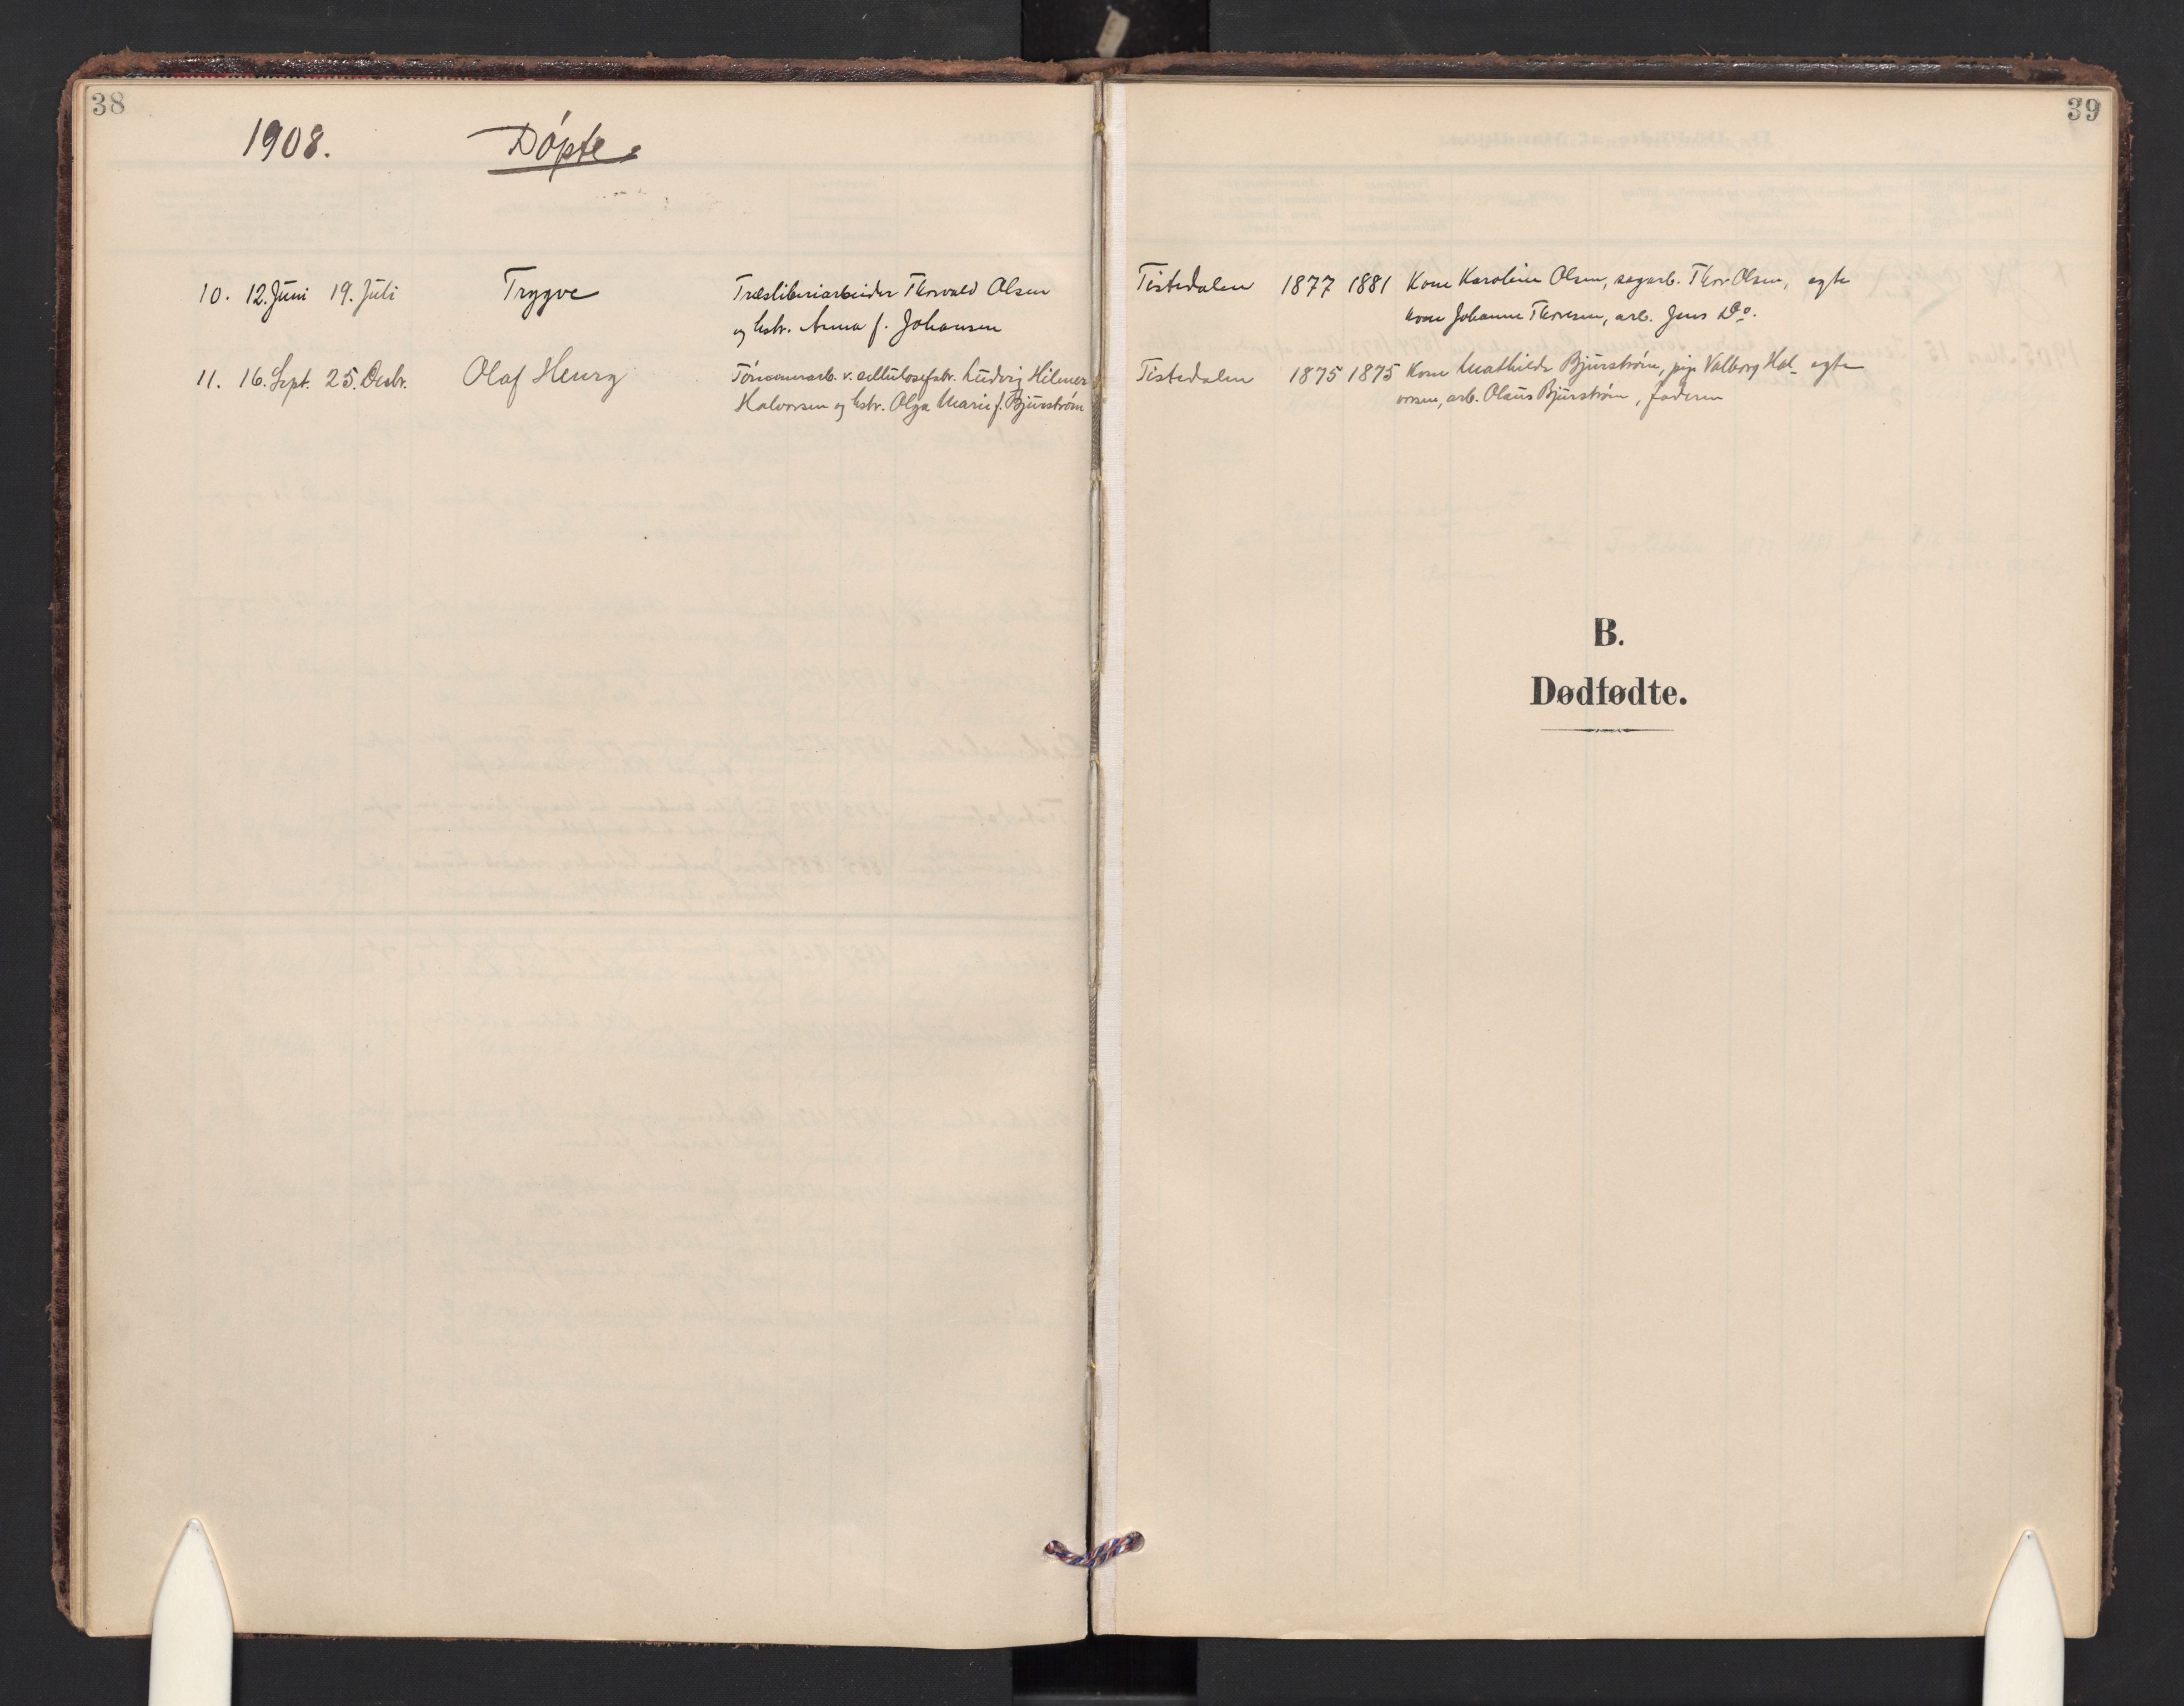 38
1908. Döpte.
10. 12. Juni 19. Juli Trygve Træsliberiarbeider Thorvald Olsen
og hstr. Anna f. Johansen
11. 16. Sept. 25. Decbr. Olaf Henry v. cellulosefabr. Ludvig Hilmer
Halvorsen og hstr. Olga Marie f. Bjurström
39
Tistedalen 1877 1881 Kone Karoline Olsen, sagarb. Thor Olsen, egte
Kone Johanne Thoresen, arb. Jens Do.
Tistedalen 1875 1875 Kone Mathilde Bjurström, pige Valborg Hal- egte
vorsen, arb. Olaus Bjurström, faderen
B.
Dødfødte.